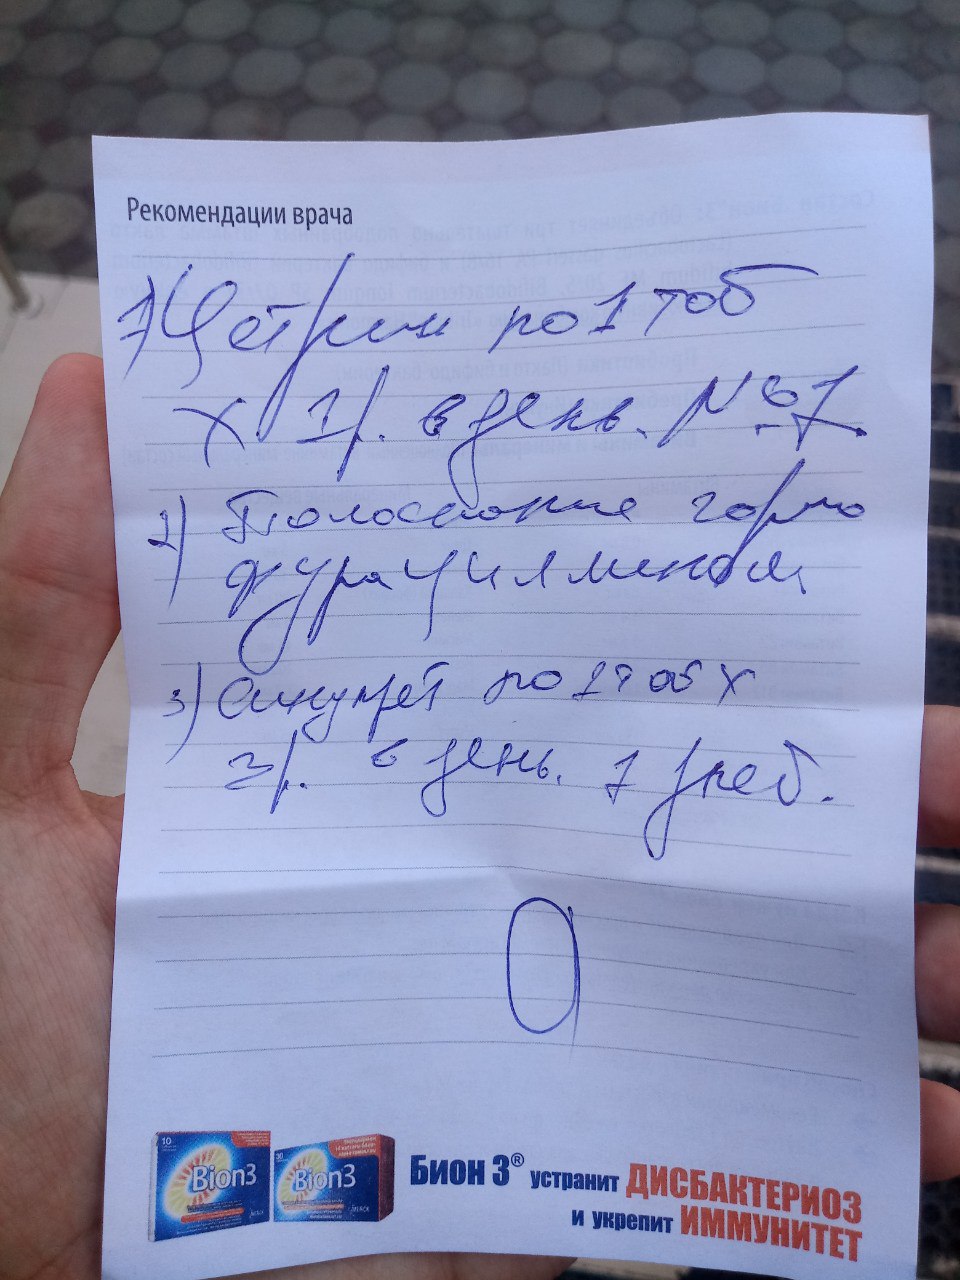 Рекомендации врача
1) Цетрин по 1 таб
х 1 р. в день. № 7.
2) Полоскание горло
фурацилином
3) Синупрет по 1 таб х
2 р. в день. 7 дней.
10
Bion3
30
Bion3
MERCK
Бион 3® устранит ДИСБАКТЕРИОЗ
и укрепит ИММУНИТЕТ